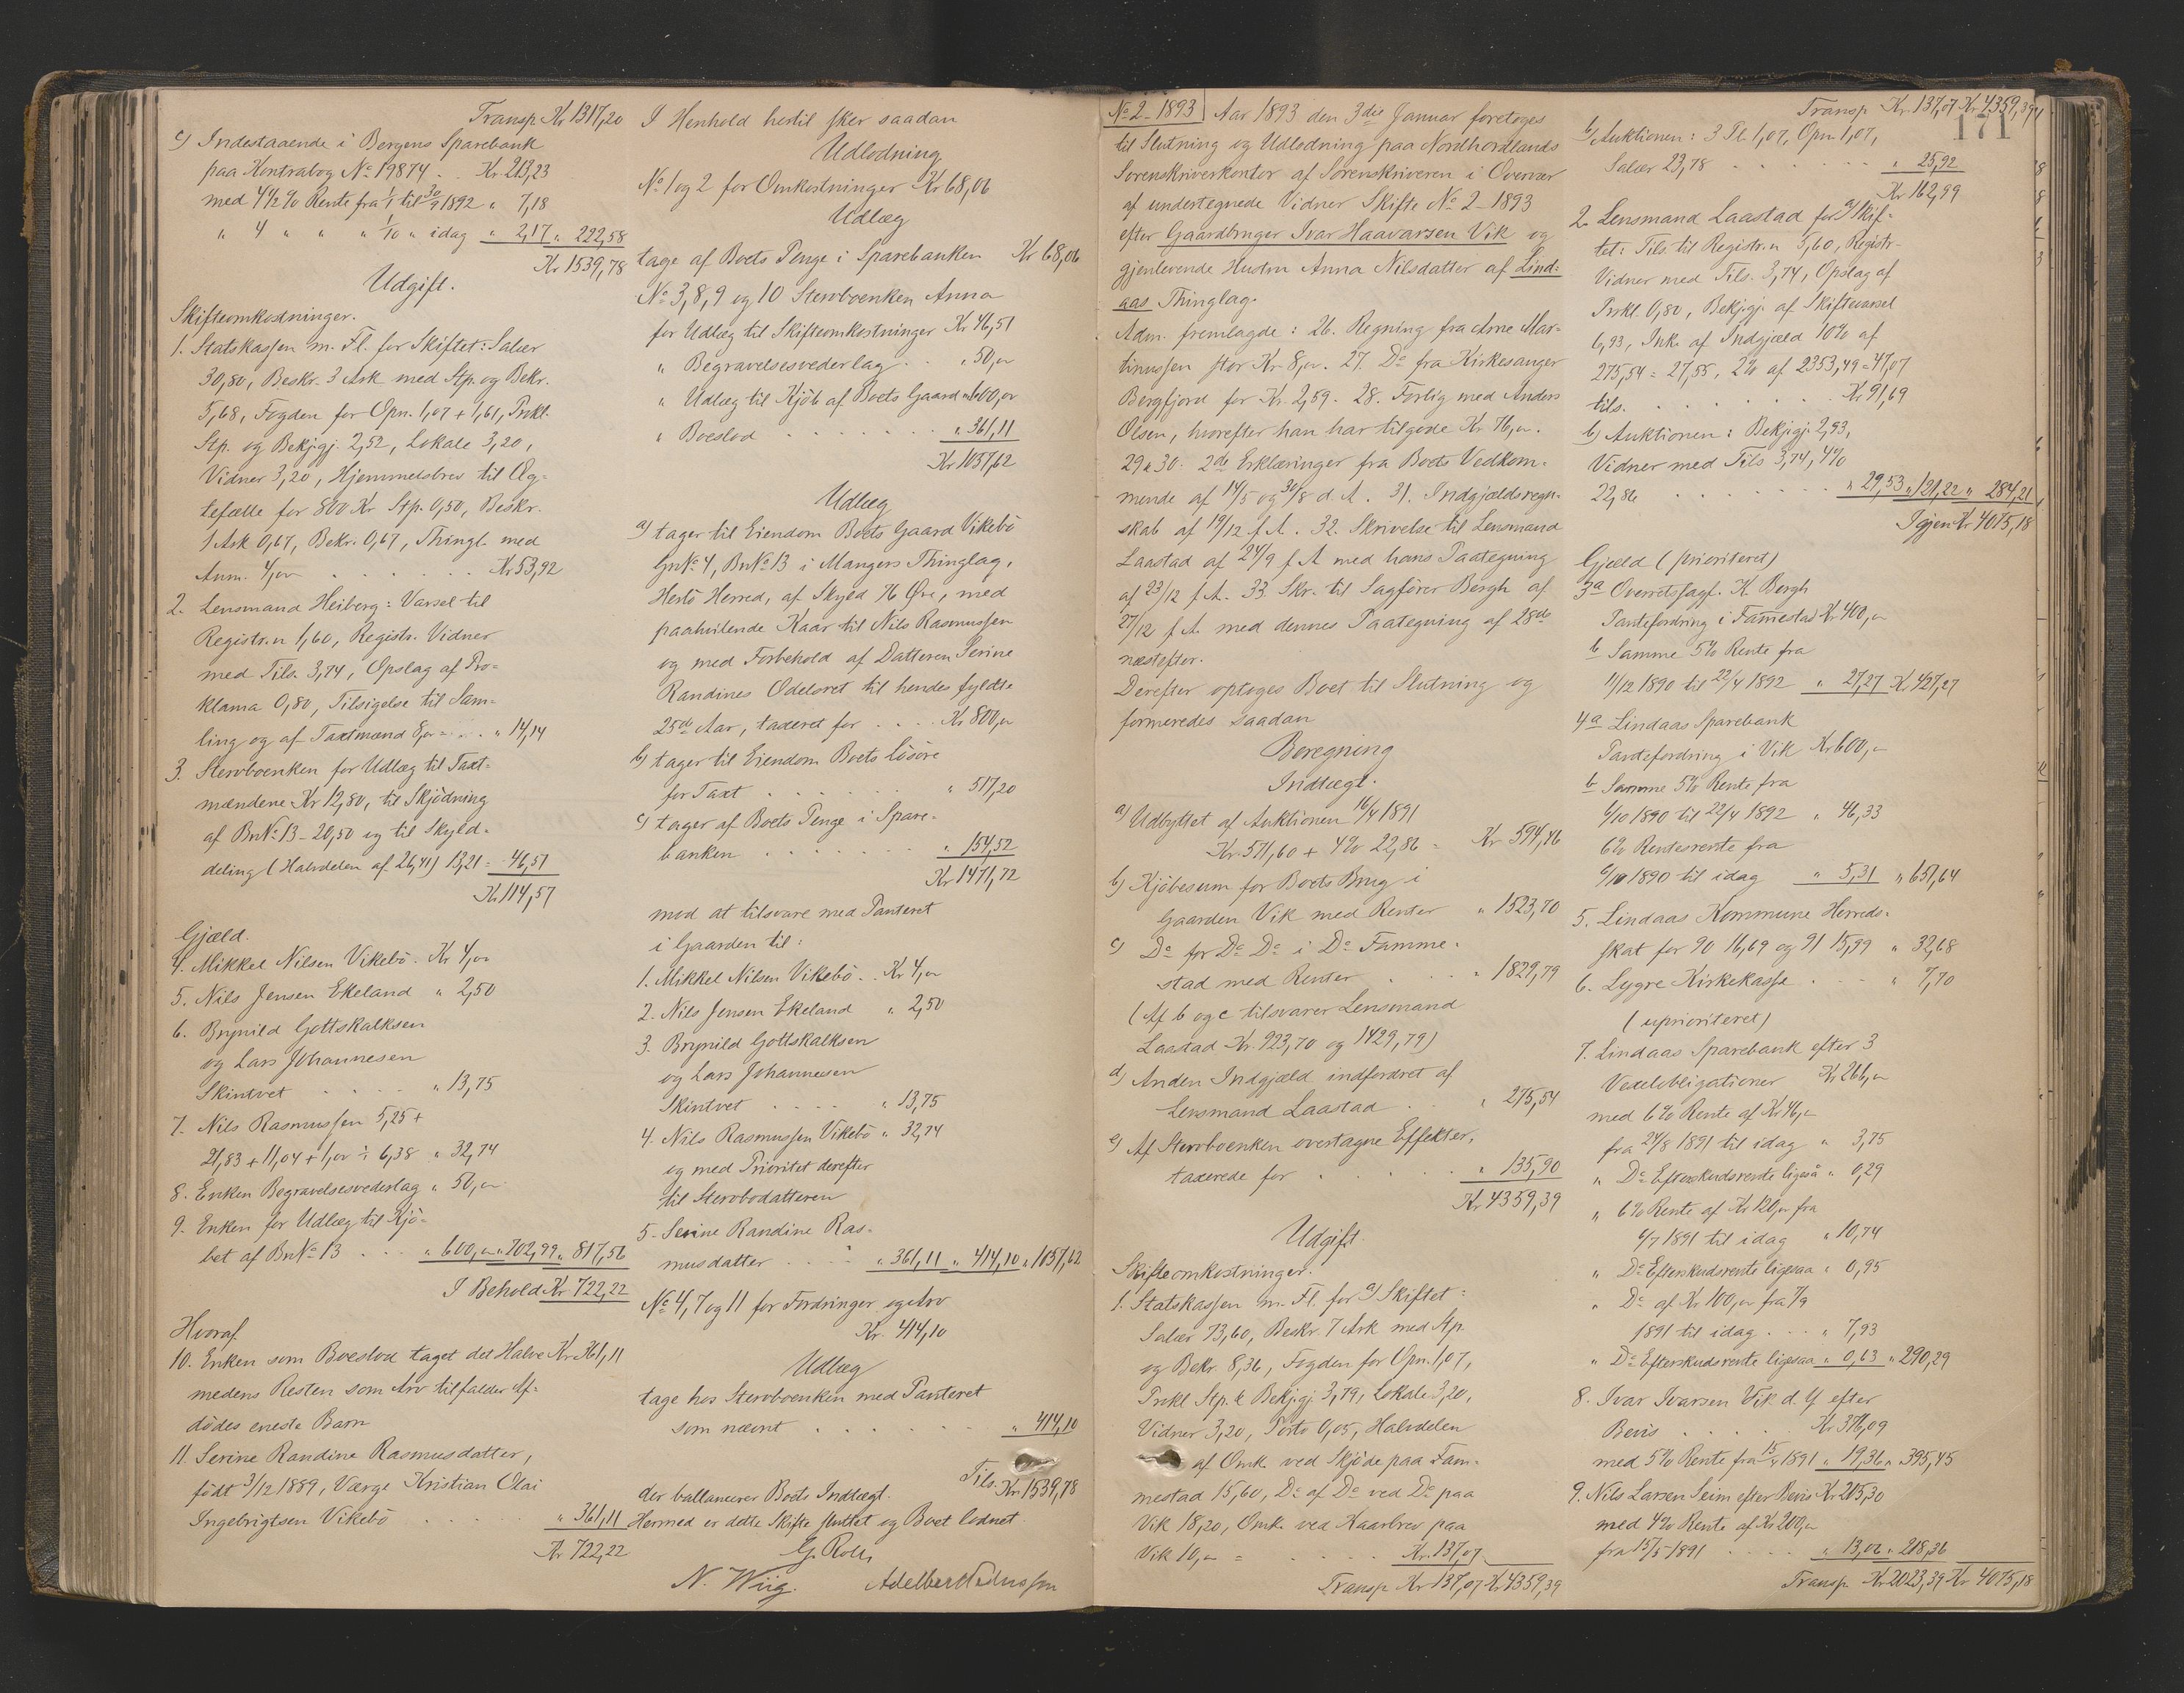 Transp. Kr 1317,20
c) Indestaaende i Bergens Sparebank
paa Kontrabog No 19874 . . Kr 213,23
med 4 1/2 % Rente fra 1/1 til 30/9 1892 " 7,18
" 4 " " " 1/10 " idag " 2,17 " 222,58
Kr 1539,78
Udgift.
Skifteomkostninger.
1. Statskassen m. Fl. for Skiftet: Salær
30,80, Beskr. 3 Ark med Stp. og Bekr.
5,68, Fogden for Opn. 1,07 + 1,61, Prkl.
Stp. og Bekjgj. 2,52, Lokale 3,20,
Vidner 3,20, Hjemmelsbrev til Æg-
tefælle for 800 Kr Stp. 0,50, Beskr.
1 Ark 0,67, Bekr. 0,67, Thingl. med
Anm. 4,00 . . . . . . Kr 53,92
2. Lensmand Heiberg: Varsel til
Registr.n 1,60, Registr. Vidner
med Tils. 3,74, Opslag af Pro-
klama 0,80, Tilsigelse til Sam-
ling og af Taxtmænd 8,00 = . . " 14,14
3. Stervboenken for Udlæg til Taxt-
mændene Kr 12,80, til Skjödning
af BnNo 13 - 20,50 og til Skyld-
deling (Halvdelen af 26,41) 13,21 = 46,51
Kr 114,57
Gjæld.
4. Mikkel Nilsen Vikebö . Kr 4,00
5. Nils Jensen Ekeland " 2,50
6. Brynild Gottskalksen
og Lars Johannesen
Skintvet . . . . " 13,75
7. Nils Rasmussen 5,25 +
21,83 + 11,04 + 1,00 ÷ 6,38 " 32,74
8. Enken Begravelsesvederlag " 50,00
9. Enken for Udlæg til Kjö-
bet af BnNo 13 . . . " 600,00 " 702,99 " 817,56
I Behold Kr 722,22
Hvoraf
10. Enken som Boeslod taget det Halve Kr 361,11
medens Resten som Arv tilfalder Af-
dödes eneste Barn
11. Serine Randine Rasmusdatter,
født 3/12 1889, Værge Kristian Olai
Ingebrigtsen Vikebö . . . . " 361,11
Kr 722,22
I Henhold hertil sker saadan
Udlodning
No 1 og 2 for Omkostninger Kr 68,06
Udlæg
tage af Boets Penge i Sparebanken Kr 68,06
No 3, 8, 9 og 10 Stervboenken Anna
for Udlæg til Skifteomkostninger Kr 46,51
" Begravelsesvederlag . . " 50,00
" Udlæg til Kjöb af Boets Gaard " 600,00
" Boeslod . . . . . . " 361,11
Kr 1057,62
Udlæg
a) tager til Eiendom Boets Gaard Vikebö
GnNo 4, BnNo 13 i Mangers Thinglag,
Herlö Herred, af Skyld 76 Øre, med
paahvilende Kaar til Nils Rasmussen
og med Forbehold af Datteren Serine
Randines Odelsret til hendes fyldte
25de Aar, taxeret for . . . . Kr 800,00
b) tager til Eiendom Boets lösöre
for Taxt . . . . . . " 517,20
c) tager af Boets Penge i Spare-
banken . . . . . . . " 154,52
Kr 1471,72
mod at tilsvare med Panteret
i Gaarden til:
1. Mikkel Nilsen Vikebö . . Kr 4,00
2. Nils Jensen Ekeland " 2,50
3. Brynild Gottskalksen
og Lars Johannesen
Skintvet . . . . " 13,75
4. Nils Rasmussen Vikebö " 32,74
og med Prioritet derefter
til Stervbodatteren
5. Serine Randine Ras-
musdatter . . . . " 361,11 " 414,10 " 1057,62
No 4, 7 og 11 for Fordringer og Arv
Kr. 414,10
Udlæg
tage hos Stervboenken med Panteret
som nævnt . . . . . . . " 414,10
Tils. Kr 1539,78
der ballancerer Boets Indtægt.
Hermed er dette Skifte sluttet og Boet lodnet.
N. Wiig.
No 2 - 1893 Aar 1893 den 3die Januar foretoges
til Slutning og Udlodning paa Nordhordlands
Sorenskriverkontor af Sorenskriveren i Overvær
af undertegnede Vidner Skifte No 2 - 1893
efter Gaardbruger Ivar Haavarsen Vik og
gjenlevende Hustru Anna Nilsdatter af Lind-
aas Thinglag.
Adm. fremlagde: 26. Regning fra Arne Mar-
tinussen stor Kr 8,00. 27. Do fra Kirkesanger
Bergfjord for Kr. 2,59. 28. Forlig med Anders
Olsen, hvorefter han har tilgode Kr 76,00.
29 & 30: 2de Erklæringer fra Boets Vedkom-
mende af 14/5 og 30/8 d. A. 31. Indgjældsregn-
skab af 19/12 f. A. 32. Skrivelse til Lensmand
Laastad af 24/9 f A med hans Paategning
af 23/12 f. A. 33. Skr. til Sagfører Bergh af
27/12 f. A. med dennes Paategning af 28de
næstefter.
Derefter optoges Boet til Slutning og
formeredes saadan
Beregning
Indtægt.
a) Udbyttet af Auktionen 16/4 1891
Kr 571,60 + 4% 22,86 = Kr 594,46
b) Kjöbesum for Boets Brug i
Gaarden Vik med Renter " 1523,70
c) Do for Do Do i Do Famme-
stad med Renter . . . " 1829,79
(Af b og c tilsvarer Lensmand
Laastad Kr. 923,70 og 1429,79)
d) Anden Indgjæld indfordret af
Lensmand Laastad . . " 275,54
e) Af Stervboenken overtagne Effekter,
taxerede for . . . . . " 135,90
Kr 4359,39
Udgift.
Skifteomkostninger.
1. Statskassen m. Fl. for a) Skiftet:
Salær 73,60, Beskr. 7 Ark med Stp.
og Bekr. 8,36, Fogden for Opn. 1,07,
Prkl. Stp. & Bekjgj. 3,79, Lokale 3,20,
Vidner 3,20, Porto 0,05, Halvdelen
af Omk. ved Skjöde paa Fam-
mestad 15,60, Do af Do ved Do paa
Vik 18,20, Omk. ved Kaarbrev paa
Vik 10,00 = . . . . . Kr. 137,07
Transp. Kr 137,07 Kr 4359,39
171
Transp. Kr. 137,07 Kr. 4359,39
b) Auktionen: 3 Pl. 1,07, Opn 1,07,
Salær 23,78 . . . . . . " 25,92
Kr 162,99
2. Lensmand Laastad for a) Skif-
tet: Tils. til Registr.n 5,60, Registr-
Vidner med Tils. 3,74, Opslag af
Prkl. 0,80, Bekjgj. af Skiftevarsel
6,93, Ink. af Indgjæld 10% af
275,54 = 27,55, 2% af 2353,49 = 47,07
tils. . . . . . . Kr 91,69
b) Auktionen: Bekjgj. 2,93,
Vidner med Tils. 3,74, 4%
22,86 . . . . . . " 29,53 " 121,22 " 284,21
Igjen Kr 4075,18
Gjæld (prioriteret)
3a Overretssagf. K. Bergh
Pantefordring i Fammestad Kr 400,00
b Samme 5% Rente fra
11/12 1890 til 22/4 1892 " 27,27 Kr 427,27
4a Lindaas Sparebank
Pantefordring i Vik Kr 600,00
b Samme 5% Rente fra
6/10 1890 til 22/4 1892 " 46,33
6% Rentesrente fra
6/10 1890 til idag " 5,31 " 651,64
5. Lindaas Kommune Herreds-
skat for 90 16,69 og 91 15,99 " 32,68
6. Lygre Kirkekasse . . . . " 7,70
(uprioriteret)
7. Lindaas Sparebank efter 3
Vexelobligationer Kr 266,00
med 6% Rente af Kr 46,00
fra 24/8 1891 til idag " 3,75
" Do Efterskudsrente ligesaa " 0,29
" 6% Rente af Kr 120,00 fra
6/7 1891 til idag " 10,74
" Do Efterskudsrente ligesaa " 0,95
" Do af Kr 100,00 fra 7/9
1891 til idag . . . " 7,93
" Do Efterskudsrente ligesaa " 0,63 " 290,29
8. Ivar Ivarsen Vik d. Y. efter
Bevis . . . . Kr 376,09
med 5% Rente fra 15/12 1891 " 19,36 " 395,45
9. Nils Larsen Seim efter Bevis Kr 205,30
med 4% Rente af Kr 200,00
fra 15/5 1891 . . . . " 13,06 " 218,36
Transp. Kr 2023,39 Kr 4075,18